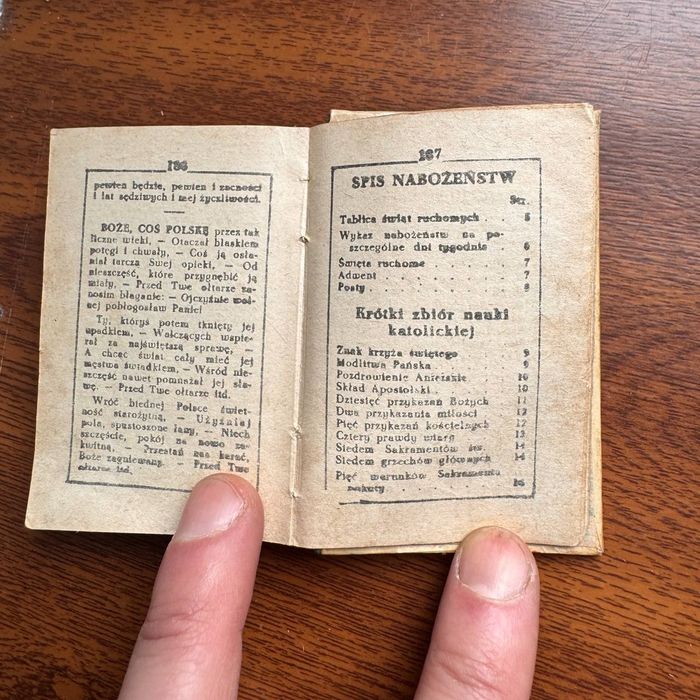 186
pewien będzie, pewien i zacności
i lat sędziwych i mej życzliwości.
BOŻE, COŚ POLSKĘ przez tak
liczne wieki, — Otaczał blaskiem
potęgi i chwały, — Coś ją osła-
niał tarczą Swej opieki, — Od
nieszczęść, które przygnębić ją
miały, — Przed Twe ołtarze za-
nosim błaganie: — Ojczyznę wol-
ną pobłogosław Panie!
Ty, któryś potem tknięty jej
upadkiem, — Walczących wspie-
rał za najświętszą sprawę, —
A chcąc świat cały mieć jej
męstwa świadkiem, — Wśród nie-
szczęść nawet pomnażał jej sła-
wę. — Przed Twe ołtarze itd.
Wróć biednej Polsce świet-
ność starożytną, — Użyźniaj
pola, spustoszone łany, — Niech
szczęście, pokój na nowo za-
kwitną, — Przestań nas karać,
Boże zagniewany. — Przed Twe
ołtarze itd.
187
SPIS NABOŻEŃSTW
Str.
Tablica świąt ruchomych . . 5
Wykaz nabożeństw na po-
szczególne dni tygodnia . 6
Święta ruchome . . . . . 7
Adwent . . . . . . . 7
Posty . . . . . . . . 8
Krótki zbiór nauki
katolickiej
Znak krzyża świętego . . . 9
Modlitwa Pańska . . . . 9
Pozdrowienie Anielskie . . 10
Skład Apostolski . . . . 10
Dziesięć przykazań Bożych . 11
Dwa przykazania miłości . 12
Pięć przykazań kościelnych . 12
Cztery prawdy wiary . . 13
Siedem Sakramentów św. . 14
Siedem grzechów głównych . 14
Pięć warunków Sakramentu
pokuty . . . . . . . 15